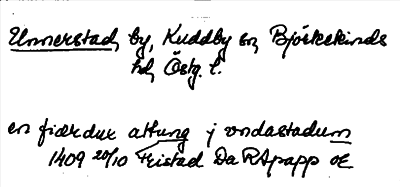 Unnerstad, by, Kuddby sn, Björkekinds
hd, Östg. l.
en fiærdux attung j vndastadum
1409 20/10 Tristad Da RApapp OE